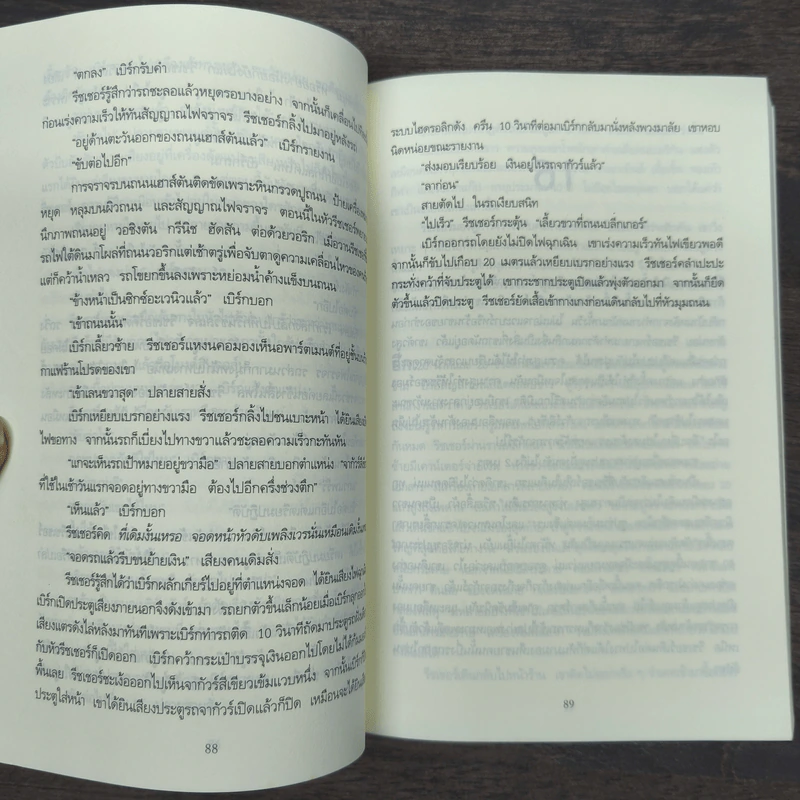 “ตกลง” เบิร์กรับคำ
รีชเชอร์รู้สึกว่ารถชะลอแล้วหยุดรอบางอย่าง จากนั้นก็เคลื่อนไป
ก่อนเร่งความเร็วให้ทันสัญญาณไฟจราจร รีชเชอร์กลิ้งไปมาอยู่หลังรถ
“อยู่ด้านตะวันออกของถนนเฮาส์ตันแล้ว” เบิร์กรายงาน
“ขับต่อไปอีก”
การจราจรบนถนนเฮาส์ตันติดขัดเพราะหินกรวดปูถนน ป้ายเครื่องหมาย
หยุด หลุมบนผิวถนน และสัญญาณไฟจราจร ตอนนี้ในหัวรีชเชอร์
นึกภาพถนนอยู่ วอชิงตัน กรีนิช ฮัดสัน ต่อด้วยวอริก เมื่อวานรีชเชอร์
รถไฟใต้ดินมาโผล่ที่ถนนวอริกแต่เช้าตรู่เพื่อจับตาดูความเคลื่อนไหวของ
แต่ก็คว้าน้ำเหลว รถโขยกขึ้นลงเพราะหย่อมน้ำค้างแข็งบนถนน
“ข้างหน้าเป็นซิกซ์อะเวนิวแล้ว” เบิร์กบอก
“เข้าถนนนั้น”
เบิร์กเลี้ยวซ้าย รีชเชอร์แหงนคอมองเห็นอพาร์ตเมนต์ที่อยู่ชั้นบน
กาแฟร้านโปรดของเขา
“เข้าเลนขวาสุด” ปลายสายสั่ง
เบิร์กเหยียบเบรกอย่างแรง รีชเชอร์กลิ้งไปชนเบาะหน้า ได้ยินเสียง
ไฟขอทาง จากนั้นรถก็เบี่ยงไปทางขวาแล้วชะลอความเร็วกะทันหัน
“แกจะเห็นรถเป้าหมายอยู่ขวามือ” ปลายสายบอกตำแหน่ง “จากัวร์
ที่ใช้ในเช้าวันแรกจอดอยู่ทางขวามือ ต้องไปอีกครึ่งช่วงตึก”
“เห็นแล้ว” เบิร์กบอก
รีชเชอร์คิด ที่เดิมงั้นเหรอ จอดหน้าหัวดับเพลิงเวรนั่นเหมือนเดิม
“จอดรถแล้วรีบขนย้ายเงิน” เสียงคนเดิมสั่ง
รีชเชอร์รู้สึกได้ว่าเบิร์กผลักเกียร์ไปอยู่ที่ตำแหน่งจอด ได้ยินเสียงไฟฉุกเฉิน
เบิร์กเปิดประตูเสียงภายนอกจึงดังเข้ามา รถยกตัวขึ้นเล็กน้อยเมื่อเบิร์กลุกออก
เสียงแตรดังไล่หลังมาทันทีเพราะเบิร์กทำรถติด 10 วินาทีถัดมาประตูรถ
กับหัวรีชเชอร์ก็เปิดออก เบิร์กคว้ากระเป๋าบรรจุเงินออกไปโดยไม่ได้
พื้นเลย รีชเชอร์ชะเง้อออกไปเห็นจากัวร์สีเขียวเข้มแวบหนึ่ง จากนั้นเบิร์กก็ปิด
ประตูใส่หน้า เขาได้ยินเสียงประตูรถจากัวร์เปิดแล้วก็ปิด เหมือนจะได้ยิน
88
ระบบไฮดรอลิกดัง ครืน 10 วินาทีต่อมาเบิร์กกลับมานั่งหลังพวงมาลัย เขาหอบ
นิดหน่อยขณะรายงาน
“ส่งมอบเรียบร้อย เงินอยู่ในรถจากัวร์แล้ว”
“ลาก่อน”
สายตัดไป ในรถเงียบสนิท
“ไปเร็ว” รีชเชอร์กระตุ้น “เลี้ยวขวาที่ถนนบลีกเกอร์”
เบิร์กออกรถโดยยังไม่ปิดไฟฉุกเฉิน เขาเร่งความเร็วทันไฟเขียวพอดี
จากนั้นก็ขับไปเกือบ 20 เมตรแล้วเหยียบเบรกอย่างแรง รีชเชอร์คลำเปะปะ
กระทั่งคว้าที่จับประตูได้ เขากระชากประตูเปิดแล้วพุ่งตัวออกมา จากนั้นก็ยืด
ตัวขึ้นแล้วปิดประตู รีชเชอร์ยัดเสื้อเข้ากางเกงก่อนเดินกลับไปที่หัวมุมถนน
89